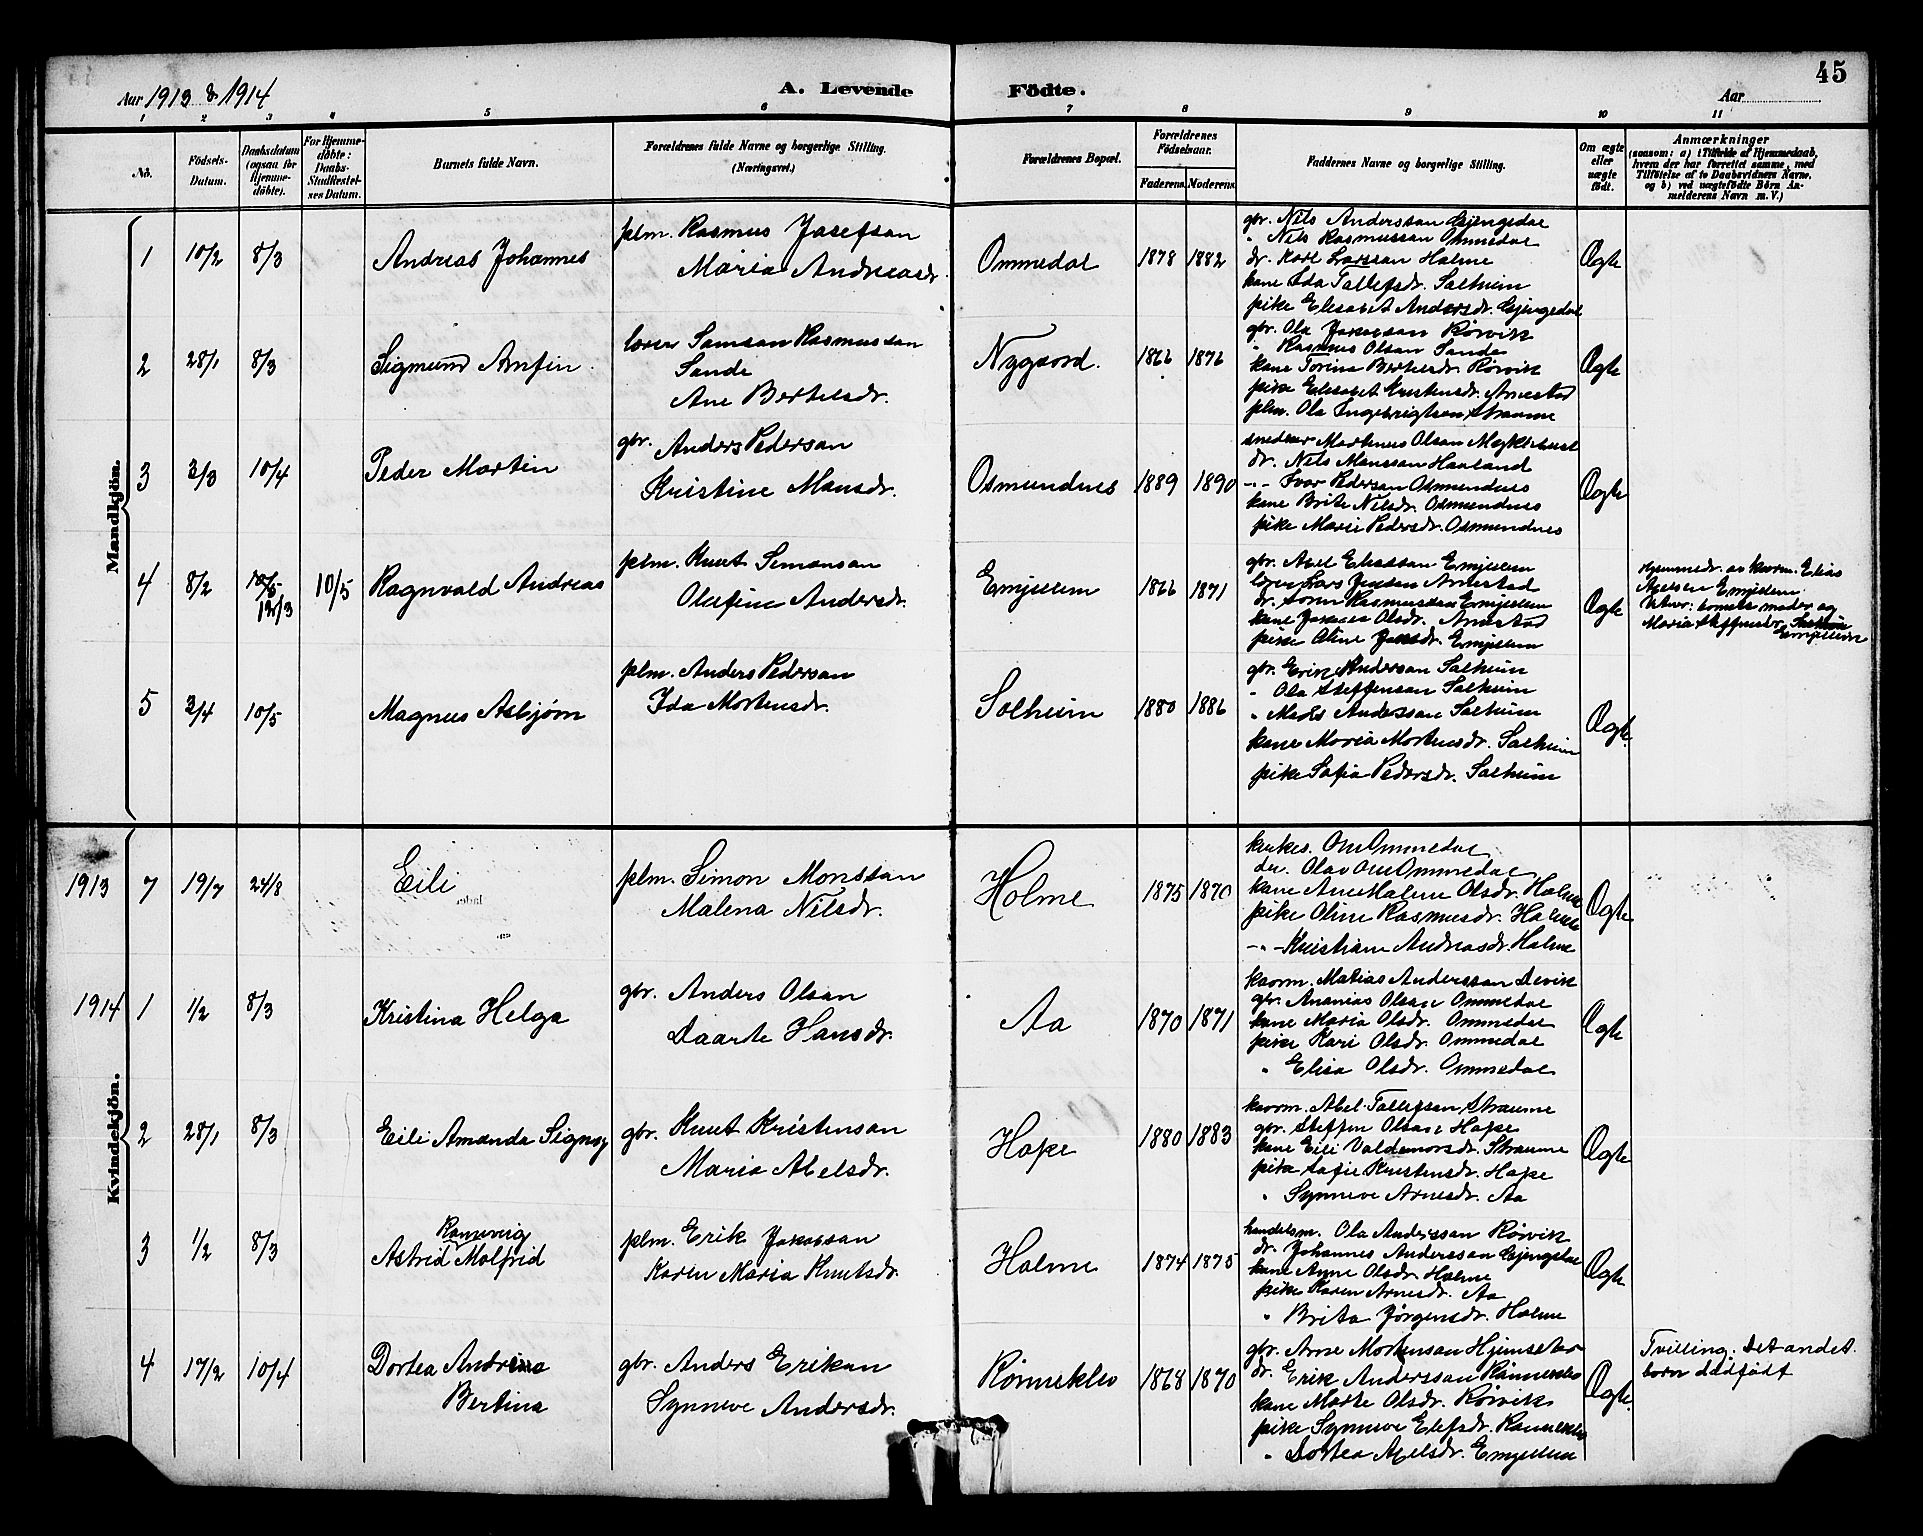 45
Aar 1913 & 1914
A. Levende Födte.
Aar
1 2 3 4 5 6 7 8 9 10 11
No.
Födsels-Datum.
Daabsdatum (ogsaa for Hjemme-döbte).
For Hjemme-döbte: Daabs-Stadfæstel-ses Datum.
Barnets fulde Navn.
Forældrenes fulde Navne og borgerlige Stilling. (Næringsvei.)
Forældrenes Bopæl.
Forældrenes Födselsaar.
Faderens. Moderens.
Faddernes Navne og borgerlige Stilling.
Om ægte eller uægte födt.
Anmærkninger
(saasom: a) i Tilfælde af Hjemmedaab, hvem der har forrettet samme, med Tilföielse af to Daabsvidners Navne, og b) ved uægtefödte Börn An-melderens Navn m. V.)
Mandkjön.
1 10/2 8/3 Andreas Johannes
plm. Rasmus Josefsan
Maria Andreasdr.
Ommedal 1878 1882
gbr. Nils Anderssan Gjengedal
" Nils Rasmussan Ommedal
dr. Karl Larssan Holme
kone Ida Tollefsdr. Solheim
pike Elisabet Andersdr. Gjengedal
Ægte
2 28/1 8/3 Sigmund Arnfin
lærer Samsan Rasmussan
Sande
Ane Bertelsdr.
Nygaard. 1866 1876
gbr. Ola Jakobsan Rørvik
" Rasmus Olsan Sande
kone Torina Bertelsdr. Rørvik
pike Elisabet Kristensdr. Arnestad
plm. Ola Ingebrigtsan Straume
Ægte
3 3/3 10/4 Peder Martin
gbr. Anders Pedersan
Kristine Monsdr.
Osmundnes 1889 1890
snedker Martinus Olsan Myklebust
dr. Nils Monssan Haaland
-"- Ivar Pedersan Osmundnes
kone Brite Nilsdr. Osmundnes
pike Marie Pedersdr. Osmundnes
Ægte
4 8/2 13/3 10/5 Ragnvald Andreas
plm. Knut Simonsan
Olefine Andersdr.
Emjellem 1866 1871
gbr. Abel Eliassan Emjellem
Lars Jensen Arnestad
dr. Rasmussan Emjellem
kone Olsdr. Arnestad
pike Oline Emjellem
Ægte
Hjemmedr. av kaarm. Elias
Abelsen Emjellem.
Vitner: barnets moder og
Maria Steffensdr. Emjellem
5 3/4 10/5 Magnus Asbjørn
plm. Anders Pedersan
Ida Mortensdr.
Solheim 1880 1886
gbr. Erik Anderssan Solheim
" Ola Steffensan Solheim
" Mads Anderssan Solheim
kone Maria Mortensdr. Solheim
pike Sofia Pedersdr. Solheim
Ægte.
Kvindekjön.
1913 7 19/7 24/8 Eili
plm. Simon Monssan
Malena Nilsdr.
Holme 1875 1870
kirkes. Ommedal
do. Olav Ommedal
kone Ane Malene Olsdr. Holme
pike Oline Rasmusdr. Holme
-"- Kristiane Andreasdr. Holme
Ægte
1914 1 1/2 8/3 Kristina Helga
gbr. Anders Olsan
Daarte Hansdr.
Aa 1870 1871
kaarm. Matias Anderssan Devik
gbr. Ananias Olsan Ommedal
kone Maria Olsdr. Ommedal
pike Kari Olsdr. Ommedal
" Elisa Olsdr. Ommedal
Ægte
2 28/1 8/3 Eili Amanda Signy
gbr. Knut Kristensan
Maria Abelsdr.
Hope 1880 1883
kaarm. Abel Tollefsan Straume
gbr. Steffen Olsan Hope
kone Eili Valdemarsdr. Straume
pike Sofie Kristensdr. Hope
" Synneve Arnesdr. Aa
Ægte
3 1/2 8/3 Astrid Ranveig Malfrid
plm. Erik Jakobsan
Karen Maria Knutsdr.
Holme 1874 1875
handelsm. Ola Anderssan Rørvik
dr. Johannes Anderssan Gjengedal
kone Anne Olsdr. Holme
pike Karen Arnesdr. Aa
" Brita Jørgensdr. Holme
Ægte
4 17/2 10/4 Dortea Andrina
Bertina
gbr. Anders Eriksan
Synneve Andersdr.
Rønneklev 1868 1870
gbr. Arne Mortensan Hjemsetar
dr. Erik Anderssan Rønneklev
kone Marte Olsdr. Rørvik
pike Synneve Elefsdr. Rønneklev
" Dortea Abelsdr. Emjellem
Ægte.
Tvilling: Det andet
barn dødfødt